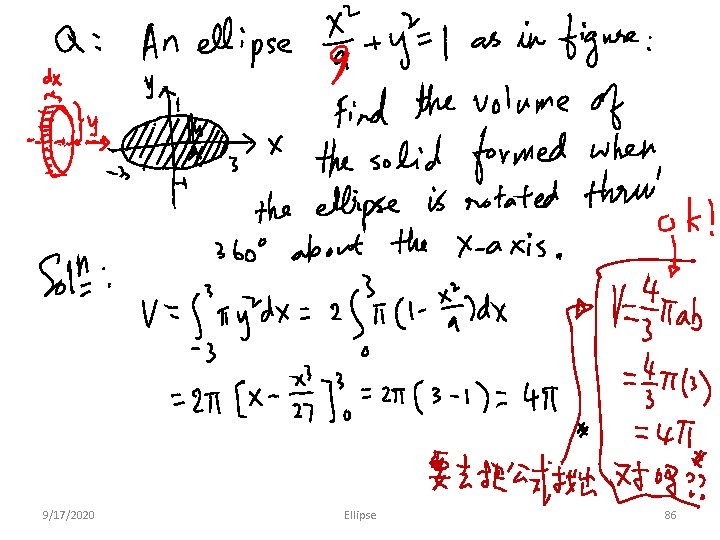 Q: An ellipse x²/9 + y² = 1 as in figure:
dx
y
y
1
x
-3
3
-1
Find the volume of
the solid formed when
the ellipse is rotated thru'
360° about the x-axis.
ok!
Solⁿ:
V = ∫₋₃³ πy²dx = 2∫₀³ π(1 - x²/9)dx
= 2π[x - x³/27]₀³ = 2π(3-1) = 4π
*
V = 4/3 πab
= 4/3 π(3)
= 4π
*
要去把公式找出 对吗??
9/17/2020
Ellipse
86